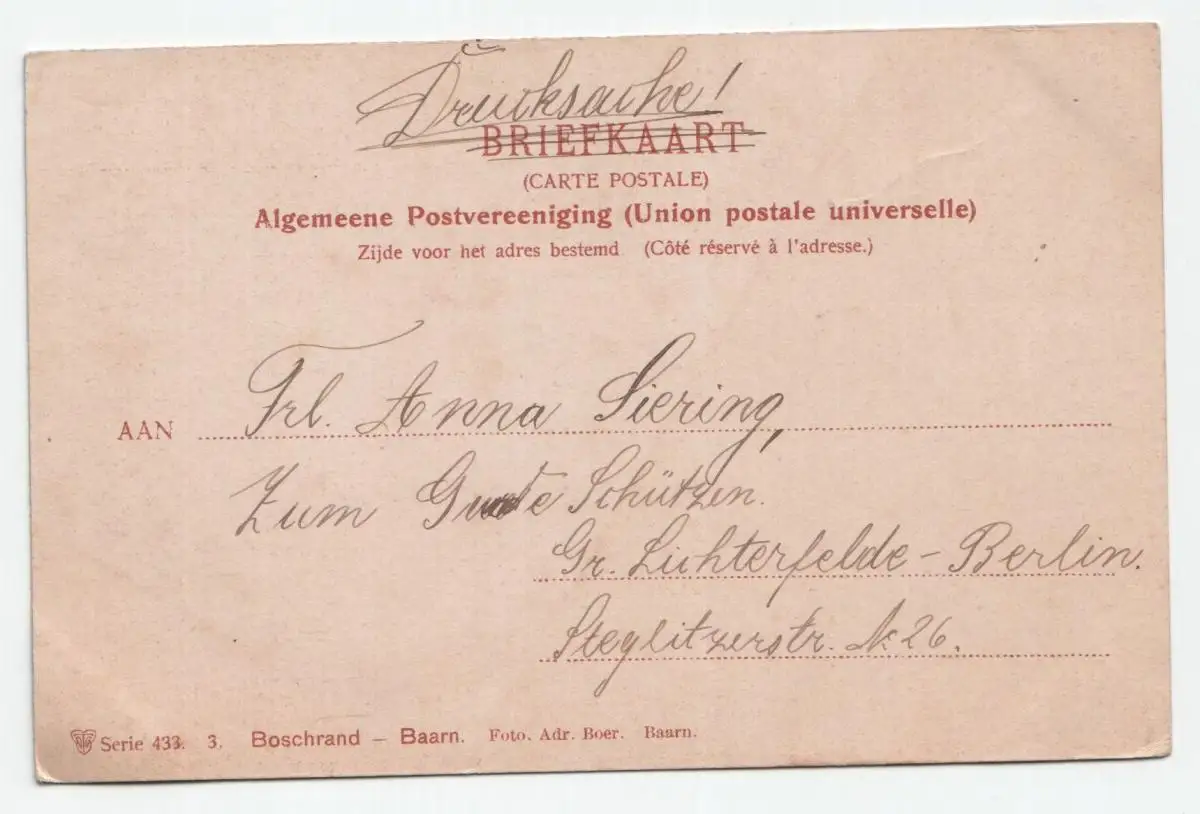 Drucksache!
BRIEFKAART
(CARTE POSTALE)
Algemeene Postvereeniging (Union postale universelle)
Zijde voor het adres bestemd (Côté réservé à l'adresse.)
AAN Frl. Anna Siering,
Zum Schützen.
Gr. Lichterfelde-Berlin.
Steglitzerstr. № 26.
Serie 433. 3. Boschrand – Baarn. Foto. Adr. Boer. Baarn.